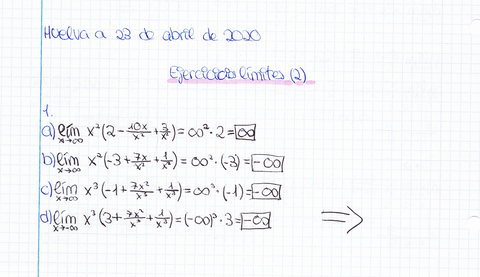 Huelva a 23 de abril de 2020
Ejercicios límites (2)
1.
a) lím x→∞ x²(2 - 10x/x² + 3/x²) = ∞² · 2 = ∞
b) lím x→∞ x²(-3 + 7x/x² + 1/x²) = ∞² · (-3) = -∞
c) lím x→∞ x³(-1 + 7x²/x³ + 1/x³) = ∞³ · (-1) = -∞
d) lím x→-∞ x³(3 + 7x²/x³ + 1/x³) = (-∞)³ · 3 = -∞ ⇒